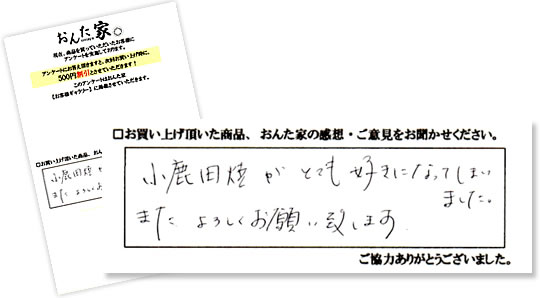 おんた家。
現在、商品を買っていただいたお客様に
アンケートを実施しております。
アンケートにお答え頂きますと、次回お買い上げ時に、
500円割引とさせていただきます!
このアンケートはおんた家
【お客様ギャラリー】に掲載させていただきます。
□お買い上げ頂いた商品、おん
小鹿田焼が
また よろしくお
□お買い上げ頂いた商品、おんた家の感想・ご意見をお聞かせください。
小鹿田焼が とても 好きになってしまい
ました。
また よろしくお願い致します
ご協力ありがとうございました。